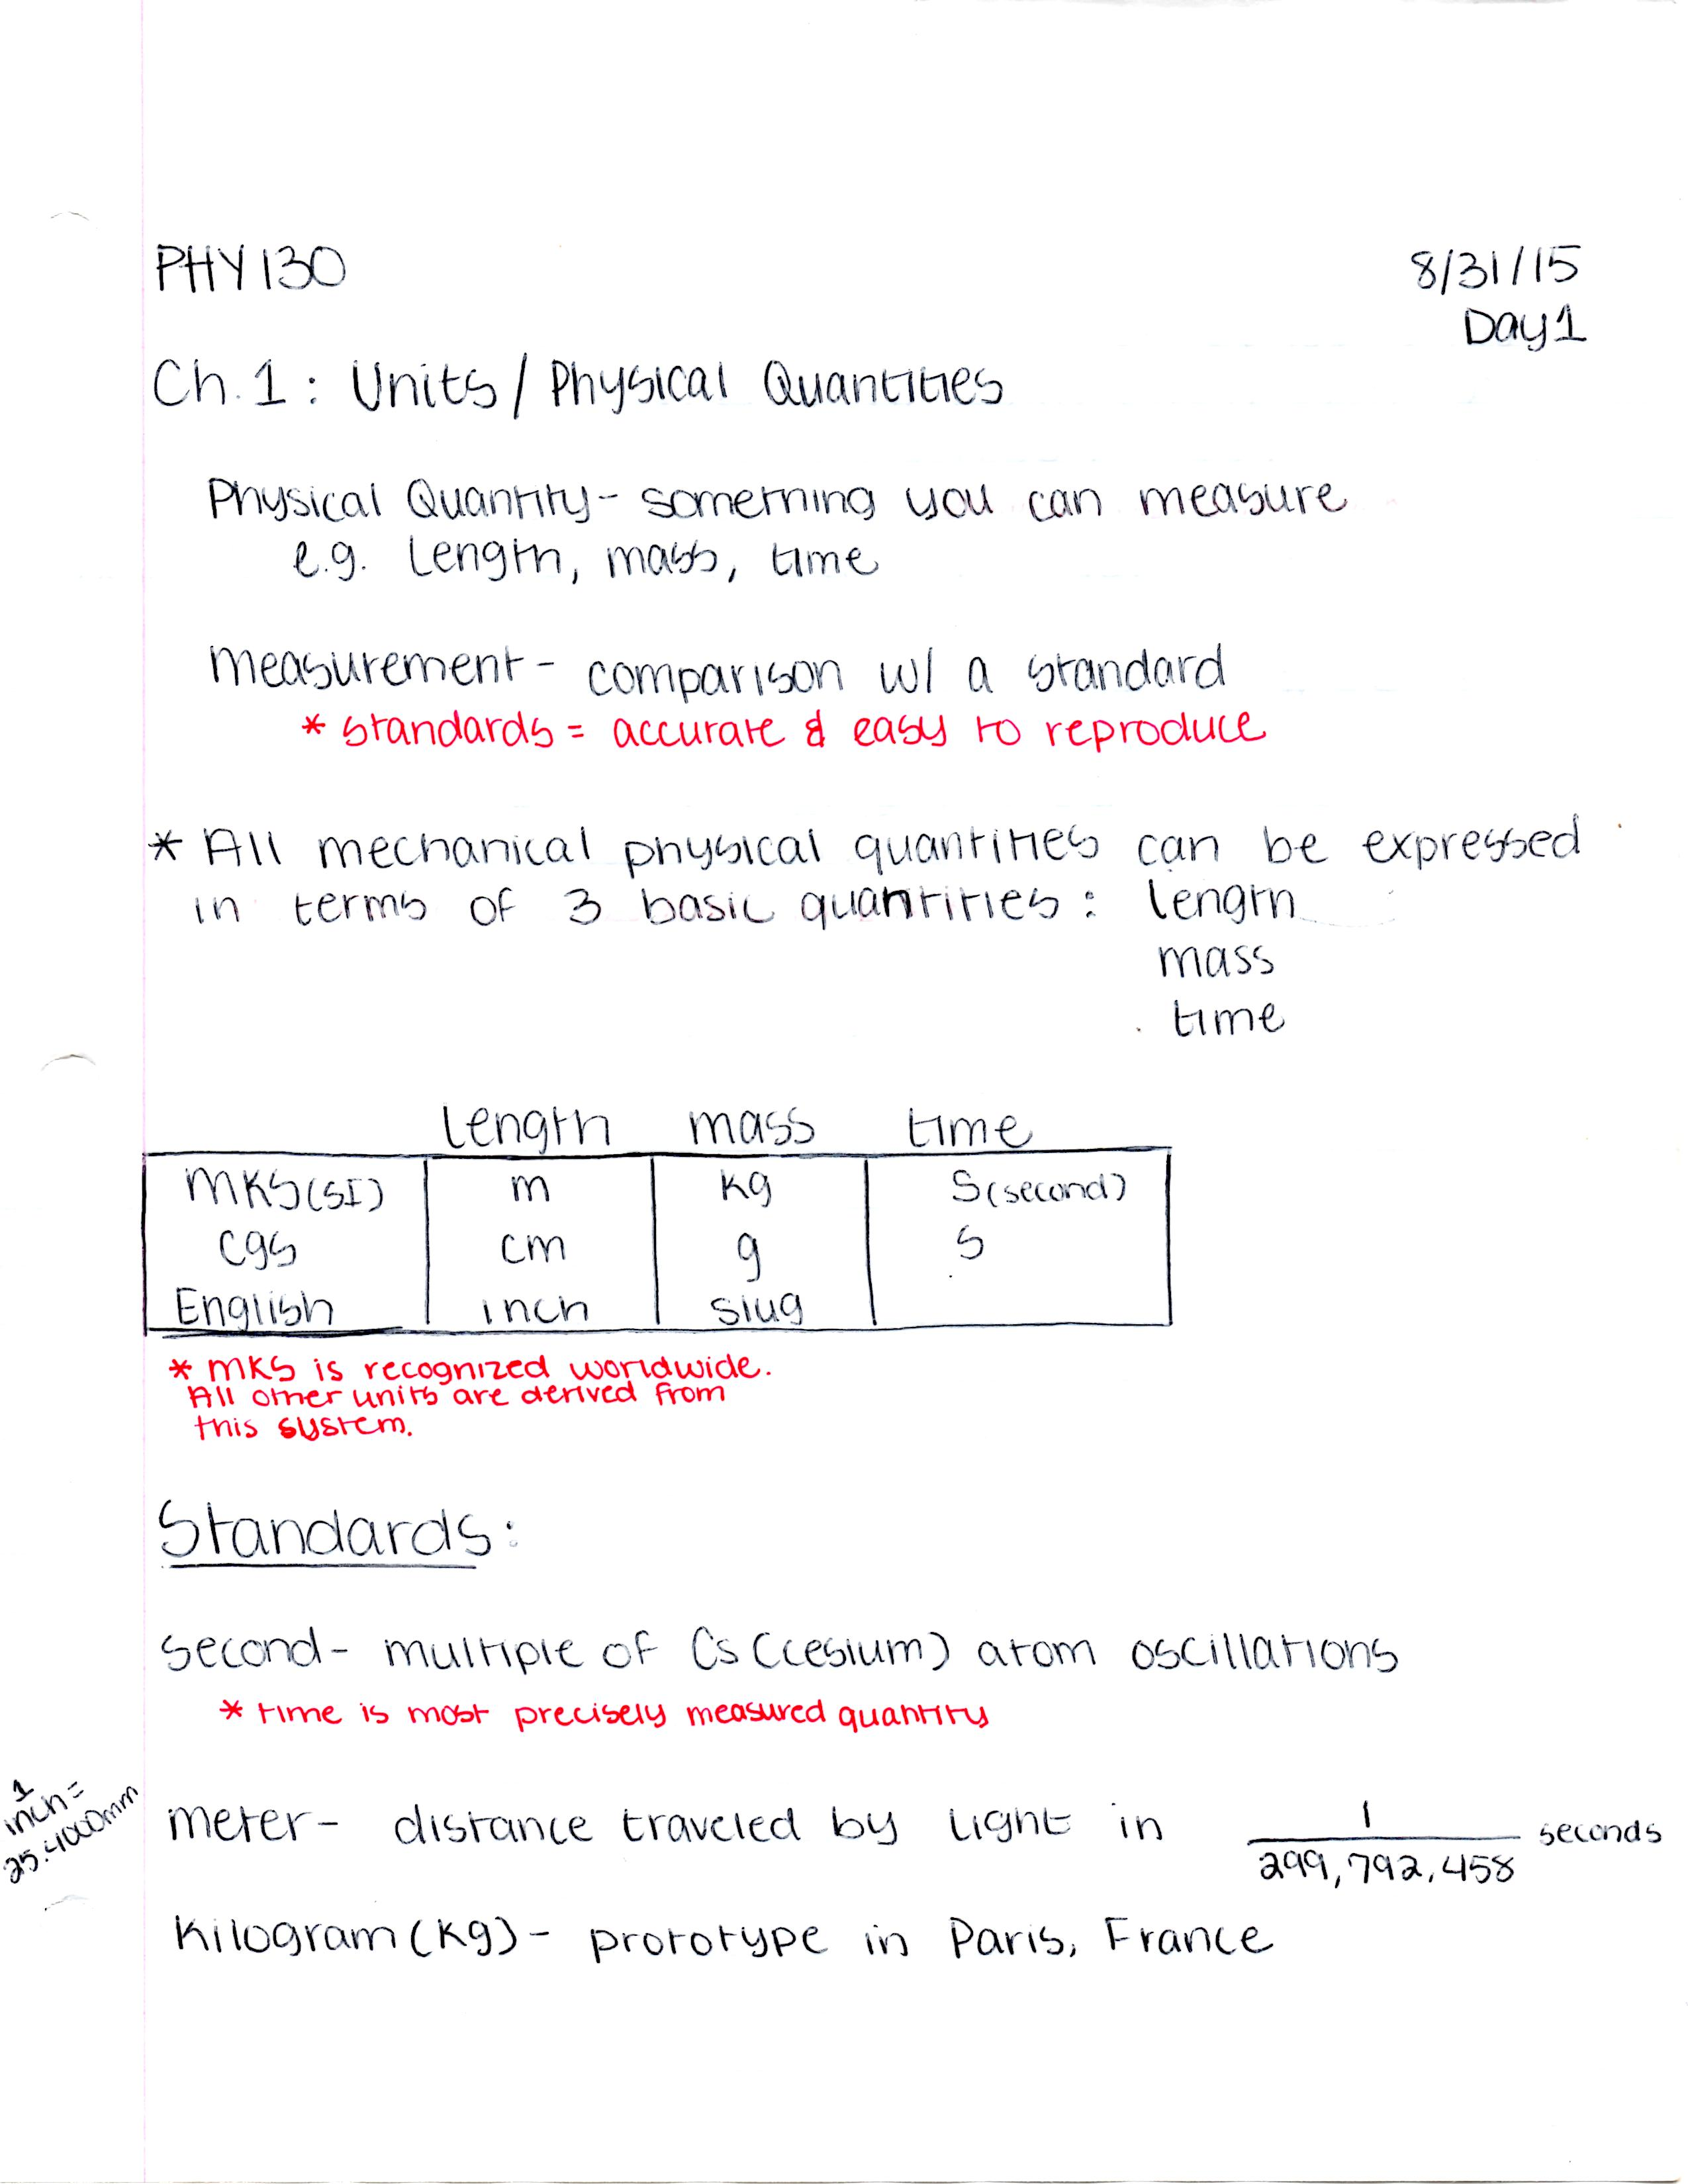 PHY 130
8/31/15
Day 1
Ch. 1: Units / Physical Quantities
Physical Quantity - something you can measure
e.g. Length, mass, time
Measurement - comparison w/ a standard
* standards = accurate & easy to reproduce
* All mechanical physical quantities can be expressed
in terms of 3 basic quantities: length
mass
time
length mass time
MKS (SI) m kg S (second)
cgs cm g s
English inch slug
* MKS is recognized worldwide.
All other units are derived from
this system.
Standards:
second - multiple of Cs (cesium) atom oscillations
* time is most precisely measured quantity
1
inch =
25.4000mm
meter - distance traveled by light in 1/299,792,458 seconds
Kilogram (kg) - prototype in Paris, France